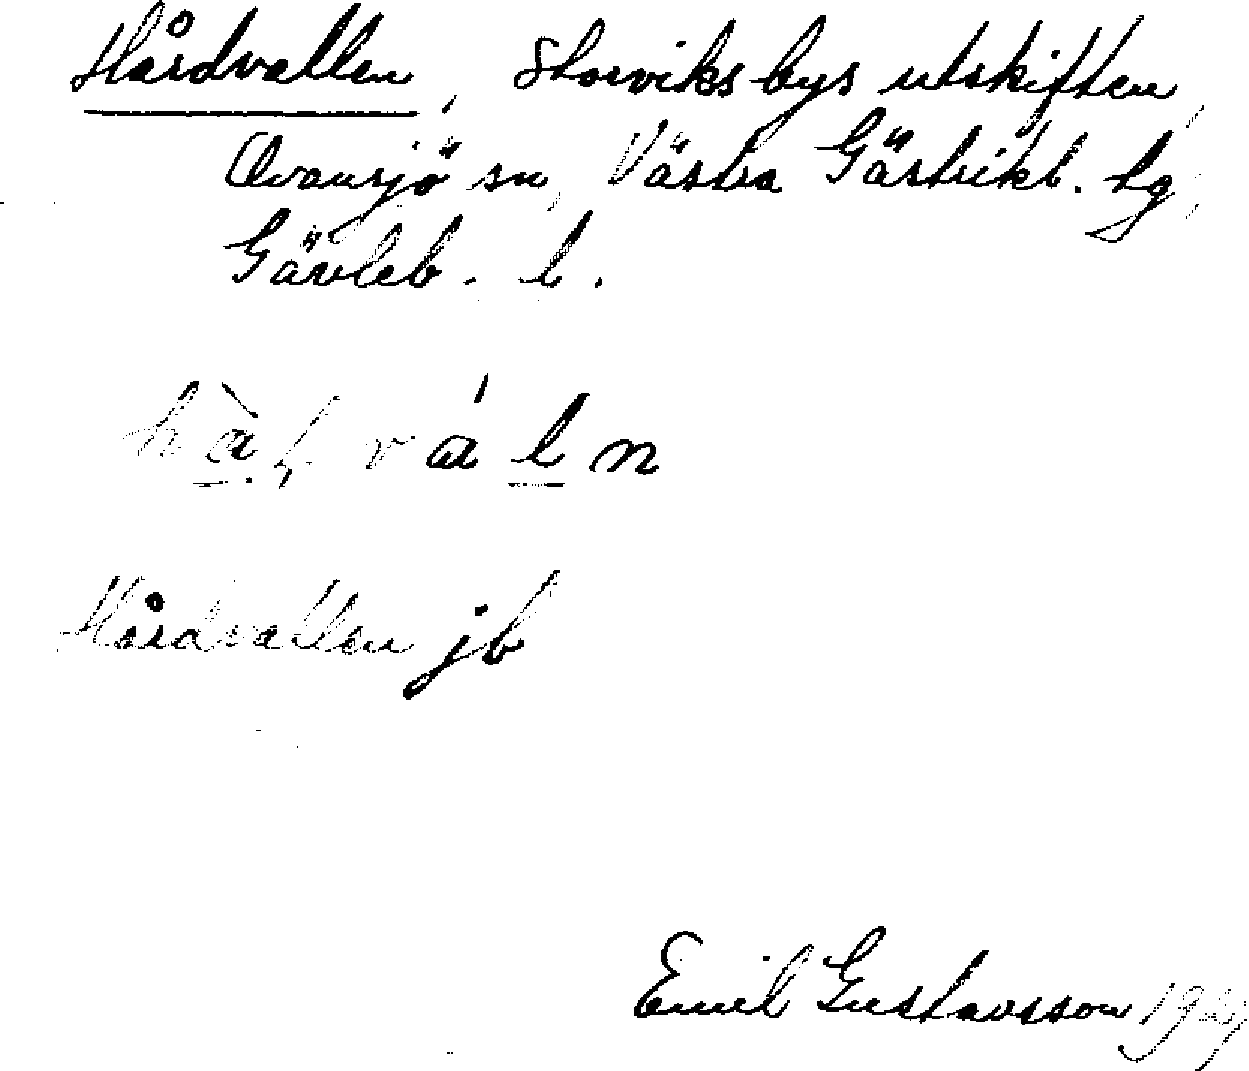 Hårdvallen, Storviks bys utskiften,
Ovansjö sn, Västra Gästrikl. tg,
Gävleb. l.
Hårdvallen jb
Emil Gustavsson